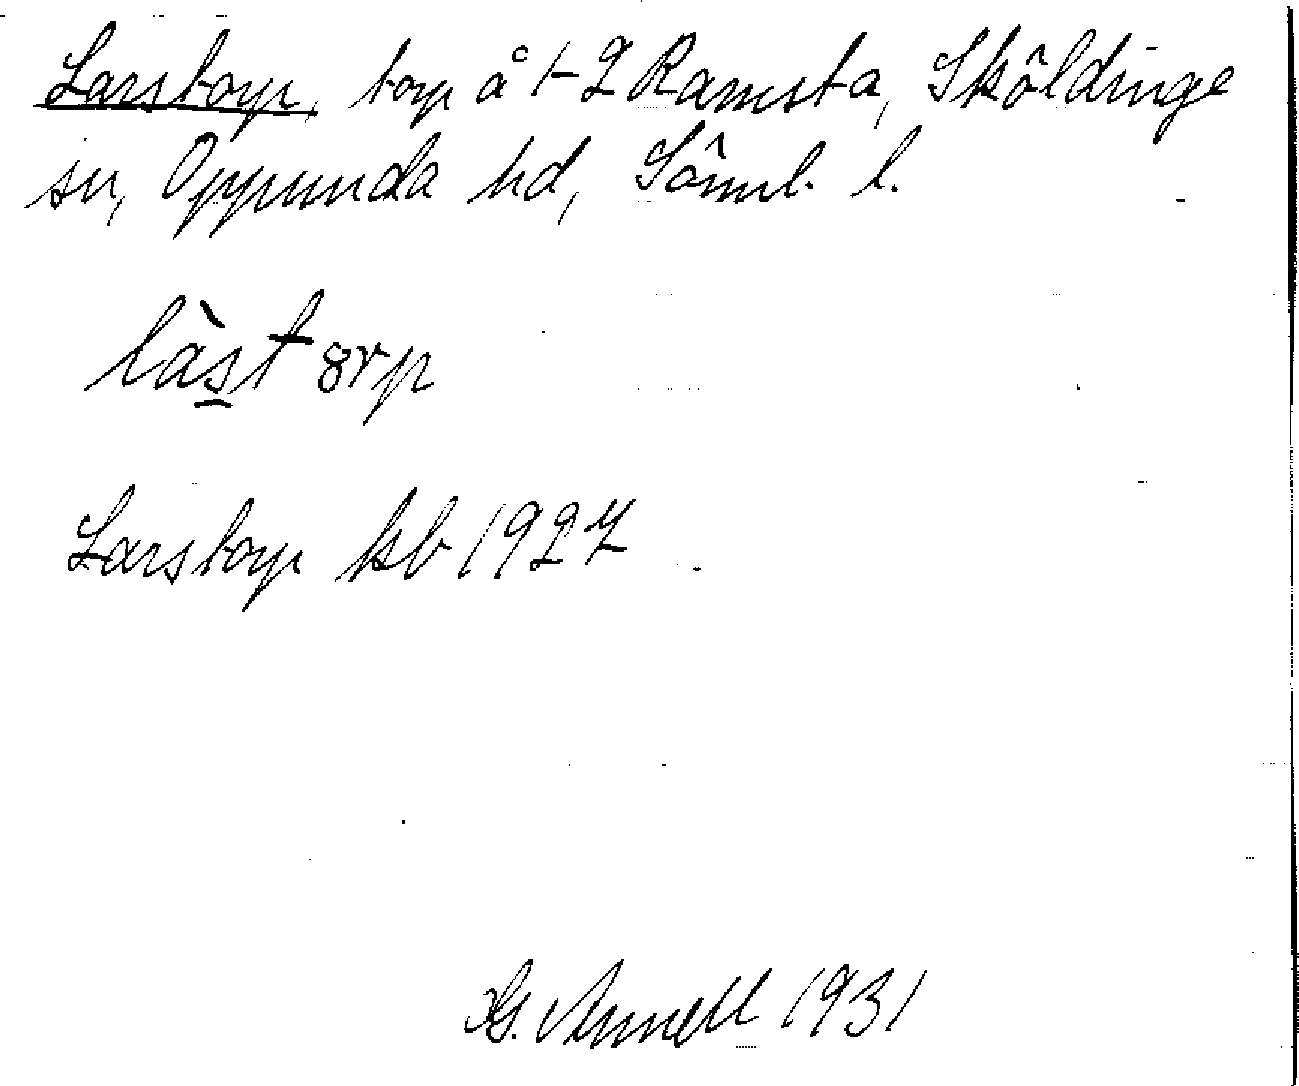 Larstorp, torp å 1-2 Ramsta, Sköldinge
sn, Oppunda hd, Söml. l.
làs̠t ȣrp
Larstorp kb 1927
G. Annell 1931